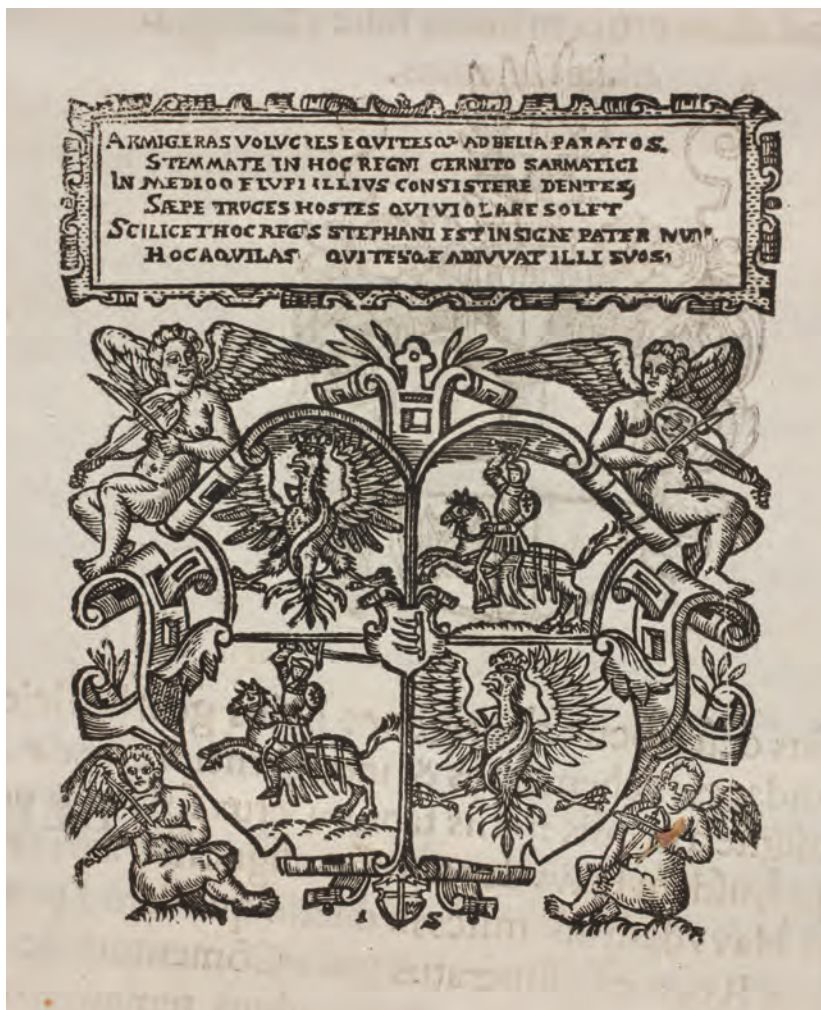 ARMIGERAS VOLVCRES EQVITESQꝫ AD BELLA PARATOS.
STEMMATE IN HOC REGNI CERNITO SARMATICI
IN MEDIOQ LVPI ILLIVS CONSISTERE DENTES,
SÆPE TRVCES HOSTES QVI VIOLARE SOLET
SCILICET HOC REGIS STEPHANI EST INSIGNE PATER
HOC AQVILAS QVITESQꝫE ADIVVAT ILLI SVOS,
I S